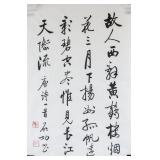 故人西辞黄鹤楼烟
花三月下扬州孤帆远
影碧空尽惟见长江
天际流 唐诗一首